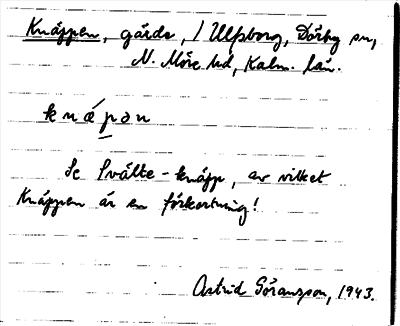 Knäppen, gårds, / Ulfsborg, Dörby sn,
N. Möre hd, Kalm. län.
knäpən
Se Svälte-knäpp, av vilket
Knäppen är en förkortning!
Astrid Göransson, 1943.